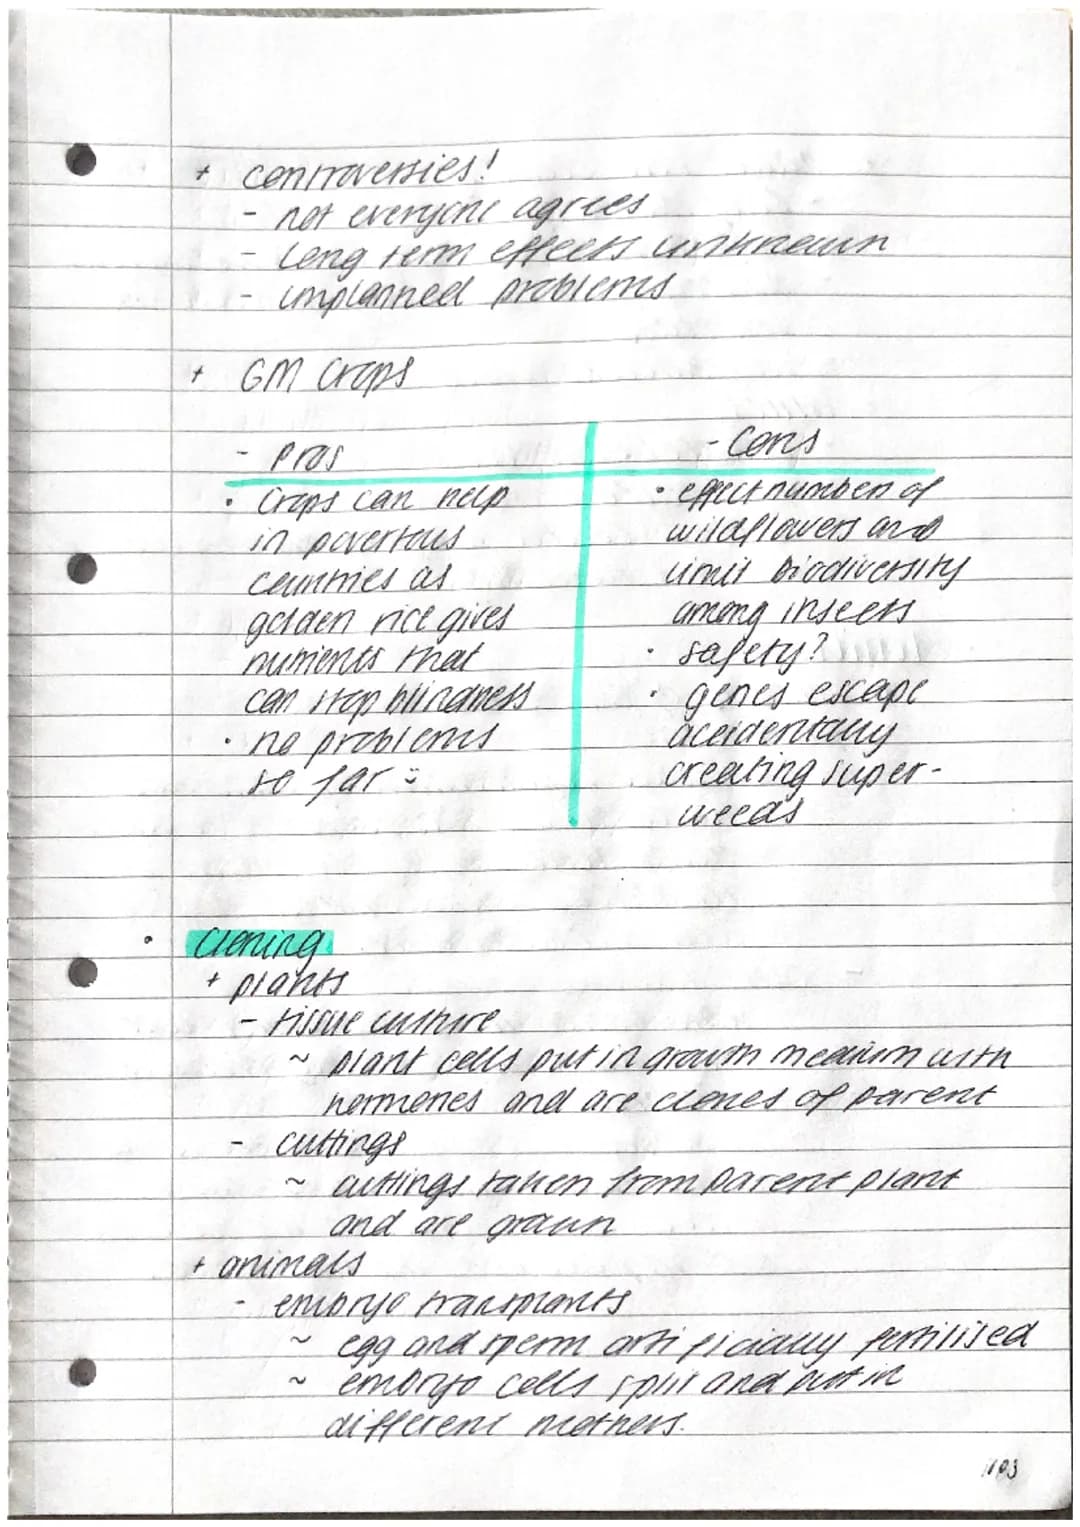 + controversies!
- not everyone agrees
- long term effects unknown
- unplanned problems
+ GM Crops
- Pros
• Crops can help
in povertous
countries as
golden rice gives
nutrients that
can stop blindness
• no problems
so far :)
- Cons
• effect number of
wildflowers and
limit biodiversity
among insects
• safety?
• genes escape
accidentally
creating super-
weeds
• cloning
+ plants
- tissue culture
~ plant cells put in growth medium with
hormones and are clones of parent
- cuttings
~ cuttings taken from parent plant
and are grown
+ animals
- embryo transplants
~ egg and sperm artificially fertilised
~ embryo cells split and put in
different mothers.